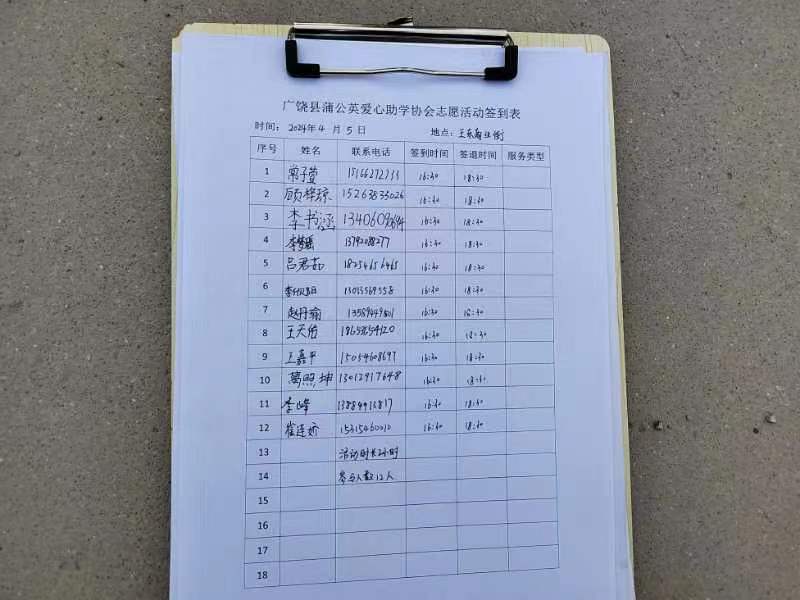 广饶县蒲公英爱心助学协会志愿活动签到表
时间: 2024年4 月 5 日 地点:
序号 姓名 联系电话 签到时间 签退时间 服务类型
1 常子萱 16:30 18:30
2 顾梓琼 15263833026 16:30 18:30
3 李书涵 16:30 18:30
4 李梦瑶 16:30 18:30
5 吕君茹 18254656465 16:30 18:30
6 16:30 18:30
7 赵丹瑜 16:30 18:30
8 王天佑 16:30 18:30
9 王嘉平 15054608697 16:30 18:30
10 葛照坤 13012917648 16:30 18:30
11 李峰 16:30 18:30
12 崔连娇 16:30 18:30
13 活动时长2小时
14 参与人数12人
15
16
17
18